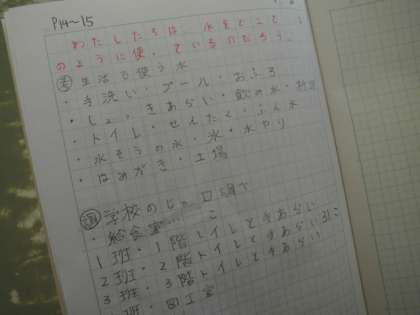 P14~15
わたしたちは、水をどこで、
のように使っているのだろう。
考 生活で使う水
・手洗い・プール・おふろ
・しょっきあらい・飲み水・
・トイレ・せんたく・ふん水
・水そうの水・氷・水やり
・はみがき・工場
調 学校のじゃ口調べ
1班・1階トイレと手あらい
2班・2階トイレと手あらい
3班・3階トイレと手あらい
班・図工室